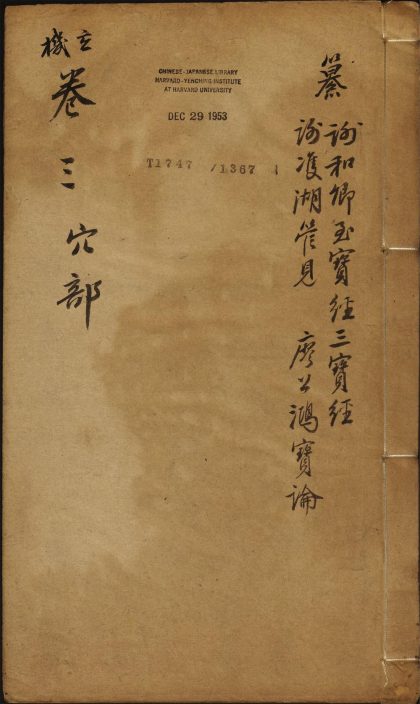 纂
謝和卿玉寶經三寶經
謝雙湖管見 廖公鴻寶論
CHINESE-JAPANESE LIBRARY
HARVARD-YENCHING INSTITUTE
AT HARVARD UNIVERSITY
DEC 29 1953
T1747 /1367
玄機
卷三 穴部